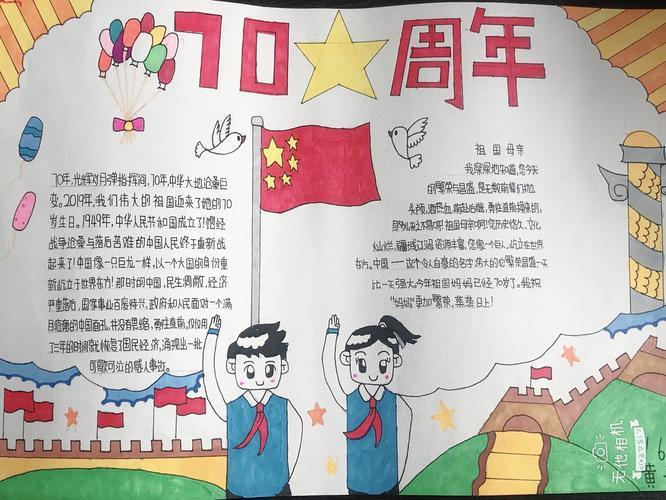 70周年
70年,光辉岁月弹指挥间,70年,中华大地沧桑巨
变。2019年,我们伟大的祖国迎来了她的70
岁生日。1949年,中华人民共和国成立了!饱经
战争沧桑与落后苦难的中国人民终于重新战
起来了!中国像一只巨龙一样,以一个大国的身份重
新屹立于世界东方!那时的中国,民生凋敝,经济
严重落后,国家事业百废待兴,政府和人民面对一个满
目疮痍的中国面孔,并没有畏缩,勇往直前,仅仅用
了三年的时间就恢复了国民经济,涌现出一批
可歌可泣的感人事迹。
祖国母亲
我深深地知道,您今天
的繁荣与昌盛,是无数前辈们抛
头颅,洒热血,前赴后继,勇往直前换来的,
是多么来之不易啊!祖国母亲啊!您历史悠久,文化
灿烂,疆域辽阔,资源丰富,您像一个巨人,屹立在世界
东方。中国——这个令人自豪的名字,伟大的
比一天强大,今年祖国妈妈已经70岁了。我祝
"妈妈"更加繁荣,蒸蒸日上!
无他相机